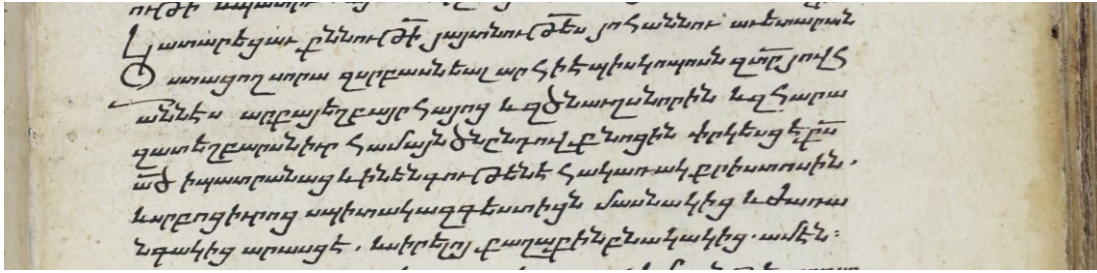 Կատարեցաւ քննութի յայտնութես յոհաննու աւետարան
Զստացող սորա զսրբասնեալ արհիեպիսկոպոսն զտր յովհ
աննէս արքայեղբայր հայոց և զծնաւղսնորին և զհարա
զատեղբարսնիւր համայն ծնընդովք նոցին փրկեսցէ քս
ած ի պատրանաց և ի նենգութենէ հակառակ քրիստոսին.
և սրբոցիւրոց սպիտակազգեստիցն մասնակից և ժառա
նգակից արասցէ. և սիրելոյ քաղաքին բնակակից. ամէն: